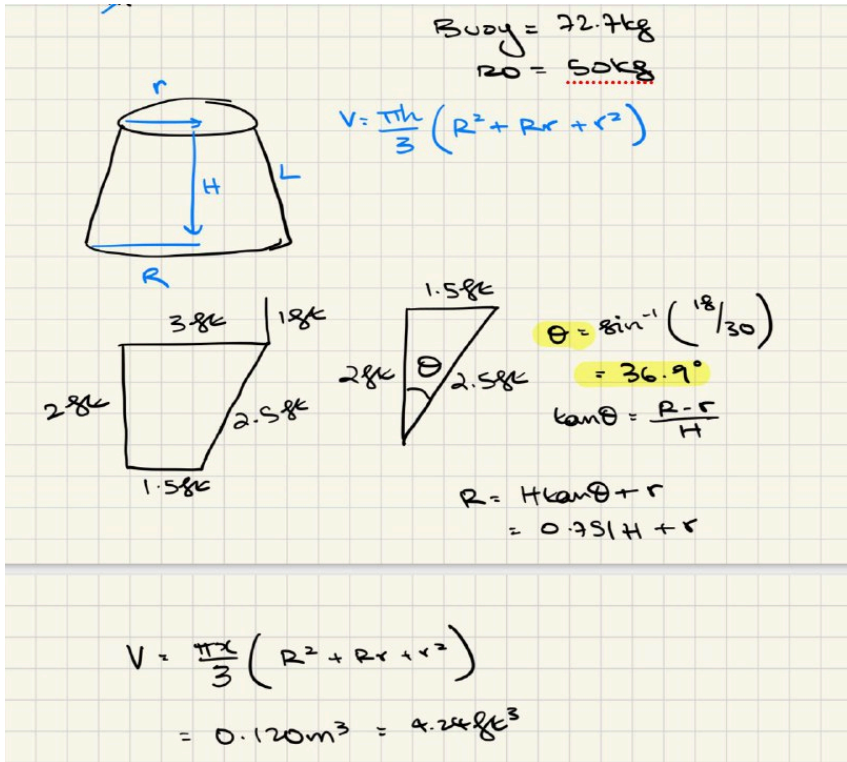 Buoy = 72.7kg
RO = 50kg
r
H
L
R
V = πh/3 (R² + Rr + r²)
3ft
1ft
2ft
2.5ft
1.5ft
1.5ft
2ft
θ
2.5ft
θ = sin⁻¹ (18/30)
= 36.9°
tanθ = R-r/H
R = Htanθ + r
= 0.751H + r
V = πx/3 (R² + Rr + r²)
= 0.120m³ = 4.24ft³